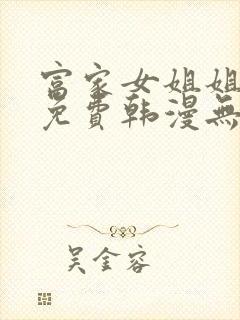 富家女姐姐
免費韩漫無
吴金容